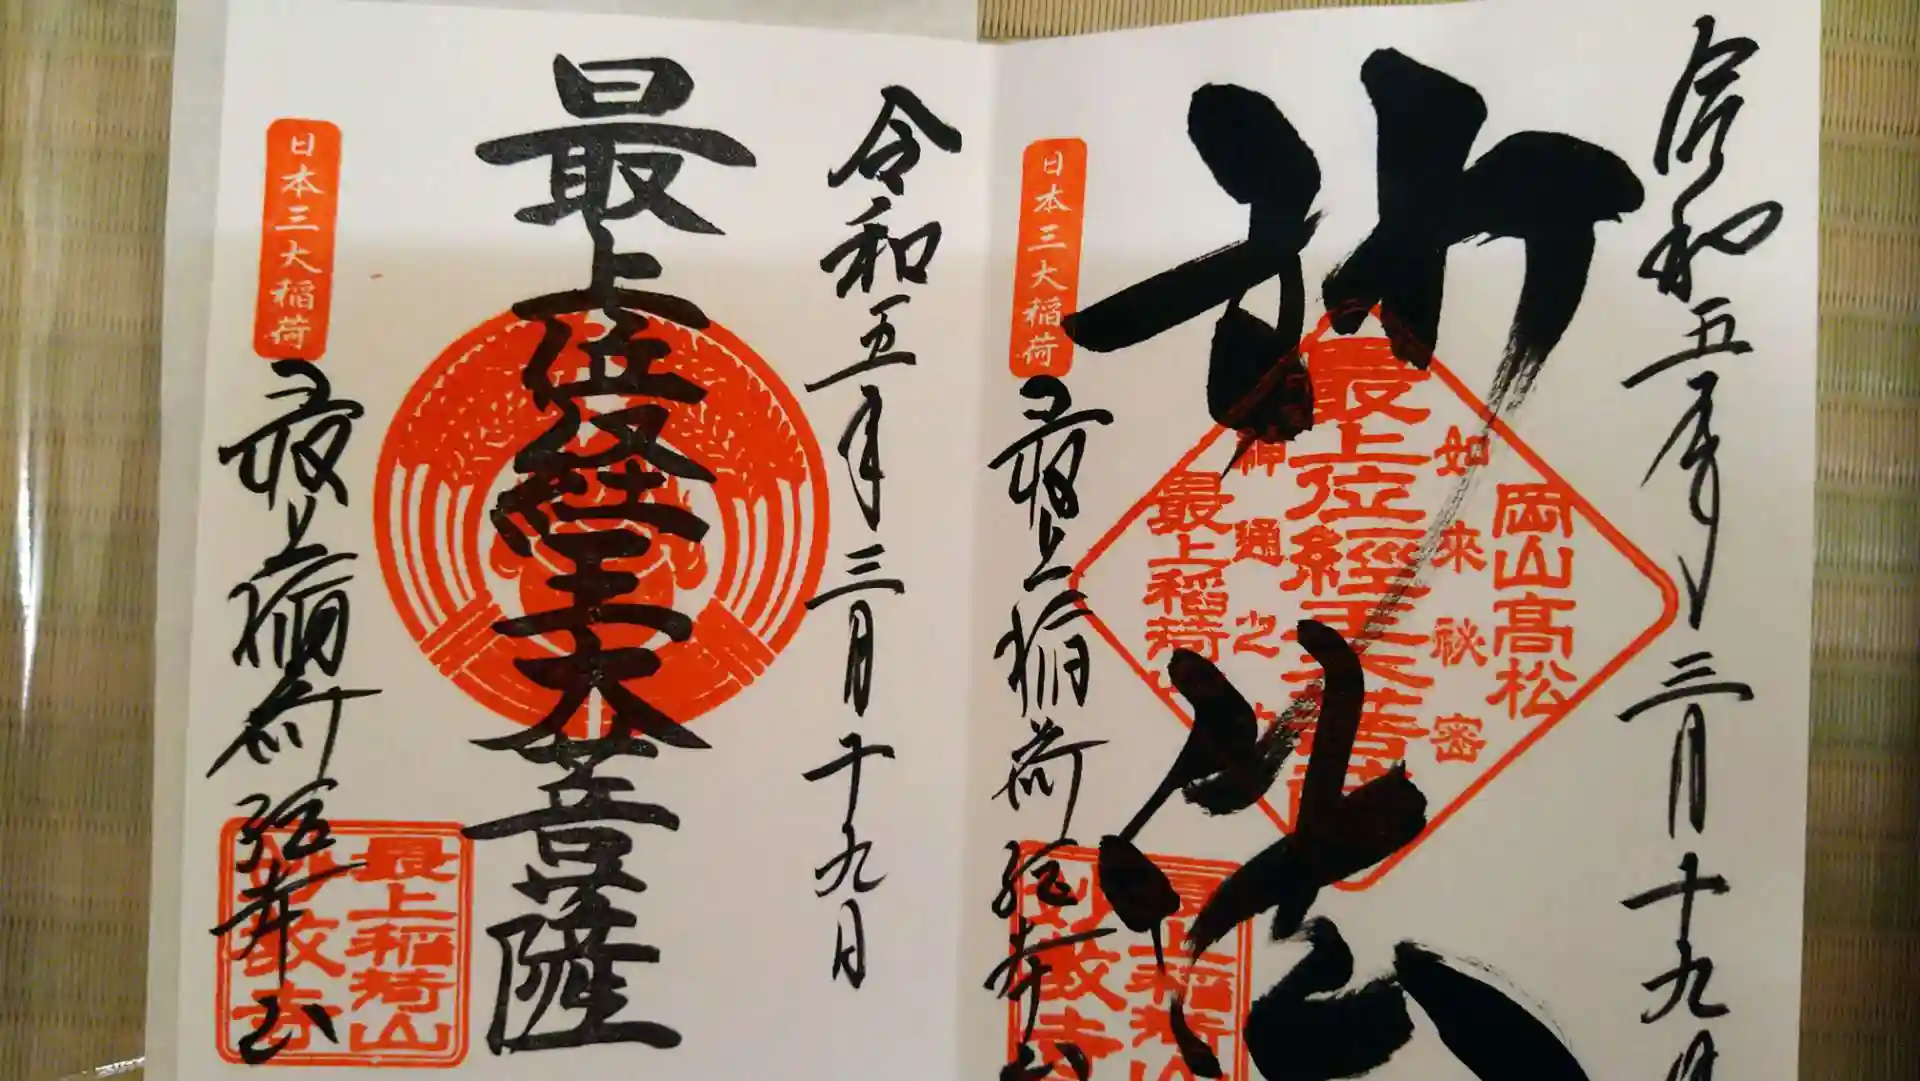 令和五年三月十九日
妙法
岡山高松
如来秘密
最上位經王大菩薩
神通之力
最上稲荷山
日本三大稲荷
最上稲荷総本山
最上稲荷山
妙教寺
令和五年三月十九日
最上位経王大菩薩
日本三大稲荷
最上稲荷総本山
最上稲荷山
妙教寺